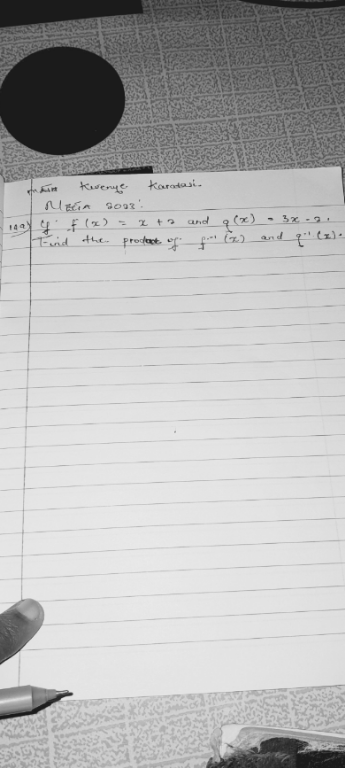 Kwenye Karatasi.
MEGA 2023.
14a) If f(x) = x + 2 and g(x) = 3x - 2.
Find the product of f⁻¹(x) and g⁻¹(x).